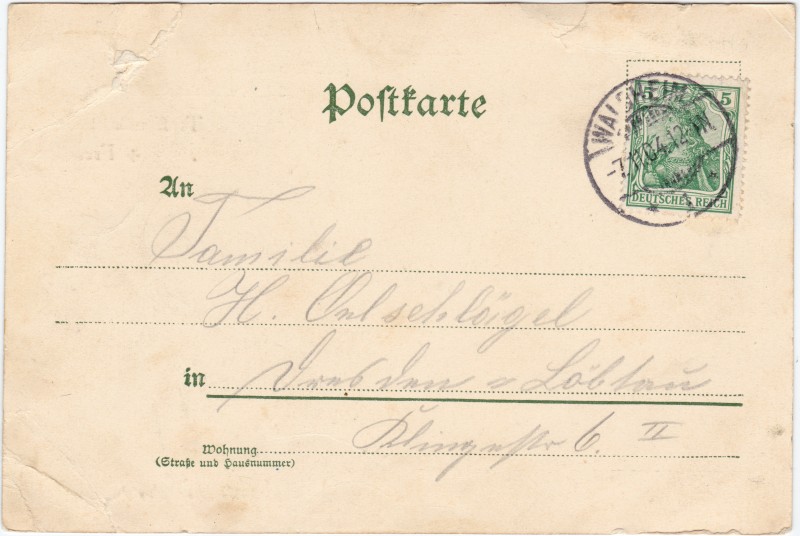 Postkarte
5 5
WALDHEIM
-7.11.04.12-1N.
DEUTSCHES REICH
An
Familie
H. Oelschlägel
in Dresden = Löbtau
Klingestr 6. II
Wohnung
(Straße und Hausnummer)